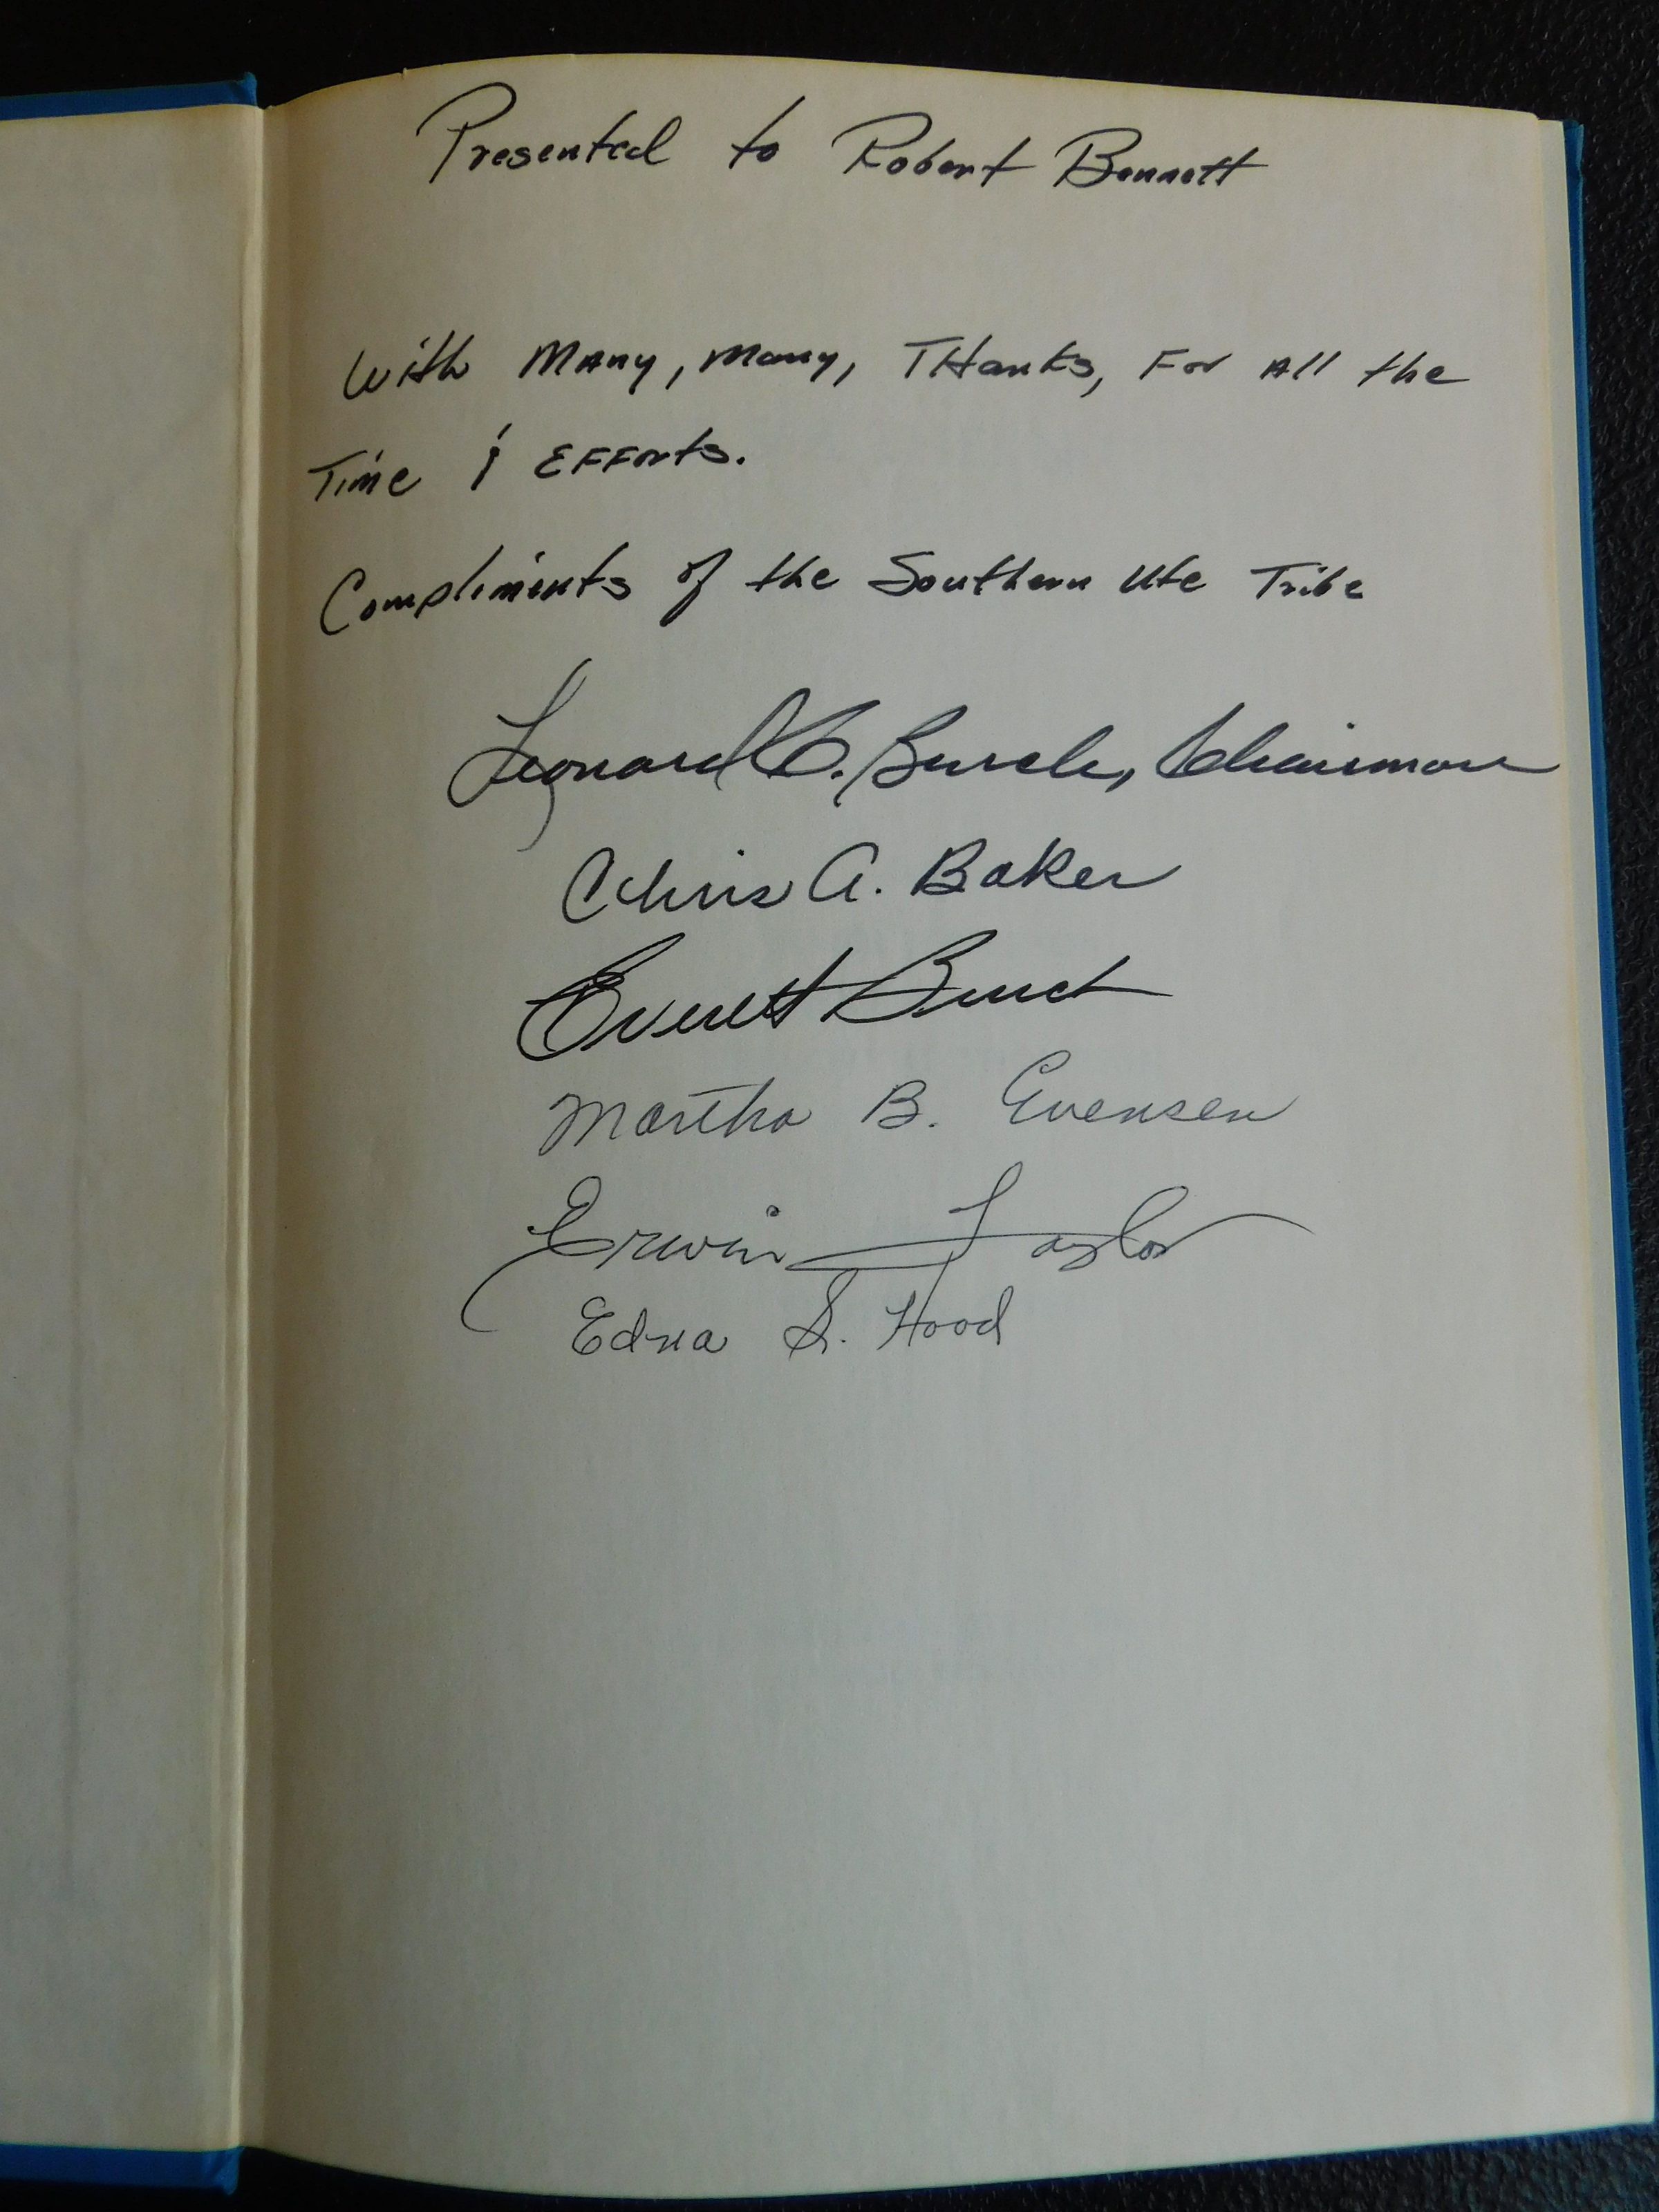 Presented to Robert Bennett
With Many, Many, THanks, For All the
Time & EFForts.
Compliments of the Southern Ute Tribe
Leonard C. Burch, Chairman
Chris A. Baker
Everett Burch
Martha B. Evensen
Erwin Taylor
Edna S. Hood